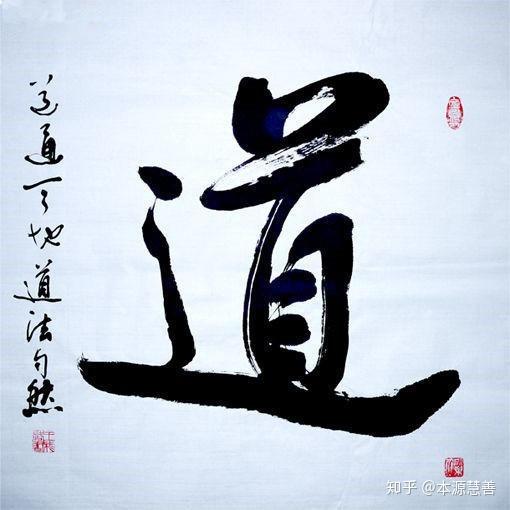 道
道通天地道法自然
知乎 @本源慧善